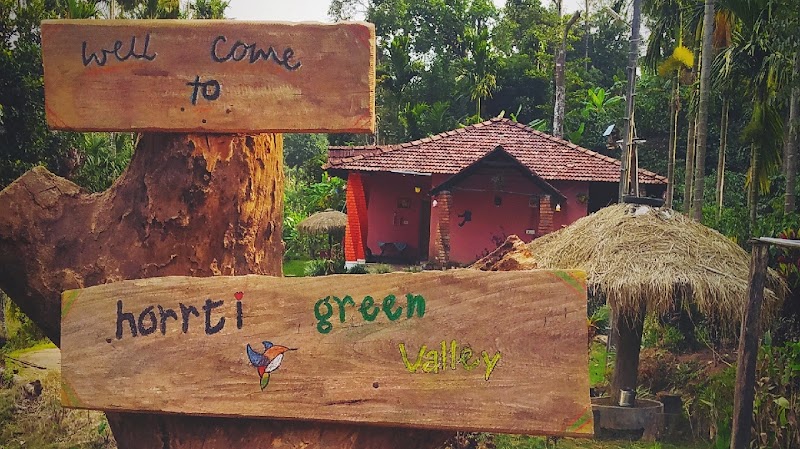 well come
to
horrti green
valley